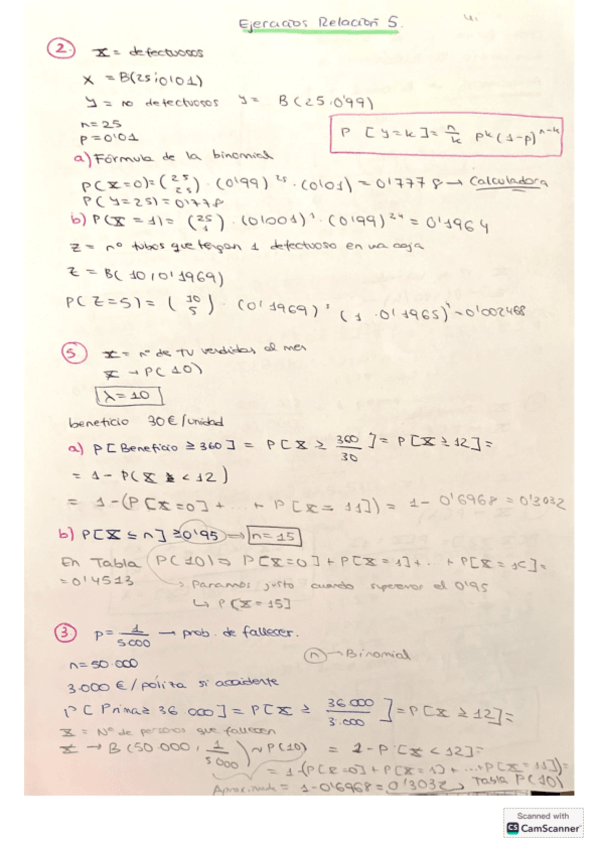 Ejercicios Relación 5.
2. X = defectuosos
X = B(25;0'01)
Y = no defectuosos Y = B(25,0'99)
n = 25
p = 0'01
P [Y=k] = n/k p^k (1-p)^n-k
a) Fórmula de la binomial
P(X=0) = (25 25) · (0'99)^25 · (0'01) = 0'7778 → Calculadora
P(Y=25) = 0'778
b) P(X=1) = (25 1) · (0'001)^1 · (0'99)^24 = 0'1964
Z = nº tubos que tengan 1 defectuoso en una caja
Z = B(10,0'1969)
P(Z=5) = (10 5) · (0'1969)^5 (1 · 0'1965)^5 = 0'002468
5 X = nº de TV vendidas al mes
X → P(10)
λ = 10
beneficio 30€/unidad
a) P[Beneficio ≥ 360] = P[X ≥ 360/30] = P[X ≥ 12] =
= 1 - P(X < 12)
= 1-(P[X=0] + ... + P[X=11]) = 1- 0'6968 = 0'3032
b) P[X ≤ n] ≥ 0'95 ⇒ n = 15
En Tabla P(10) ⇒ P[X=0] + P[X=1] + .. + P[X=15] =
= 0'9513
Paramos justo cuando superamos el 0'95
↳ P[X=15]
3 p = 1/5000 → prob. de fallecer.
n → Binomial
n = 50.000
3.000 €/póliza si accidente
P[Prima ≥ 36 000] = P[X ≥ 36 000/3.000] = P[X ≥ 12] =
X = Nº de personas que fallecen
X → B(50 000, 1/5000) ~ P(10) = 1 - P[X < 12] =
= 1-(P[X=0] + P[X=1] + ... + P[X=11]) =
Aproximado = 1-0'6968 = 0'3032 → Tabla P(10)
Scanned with
CS CamScanner